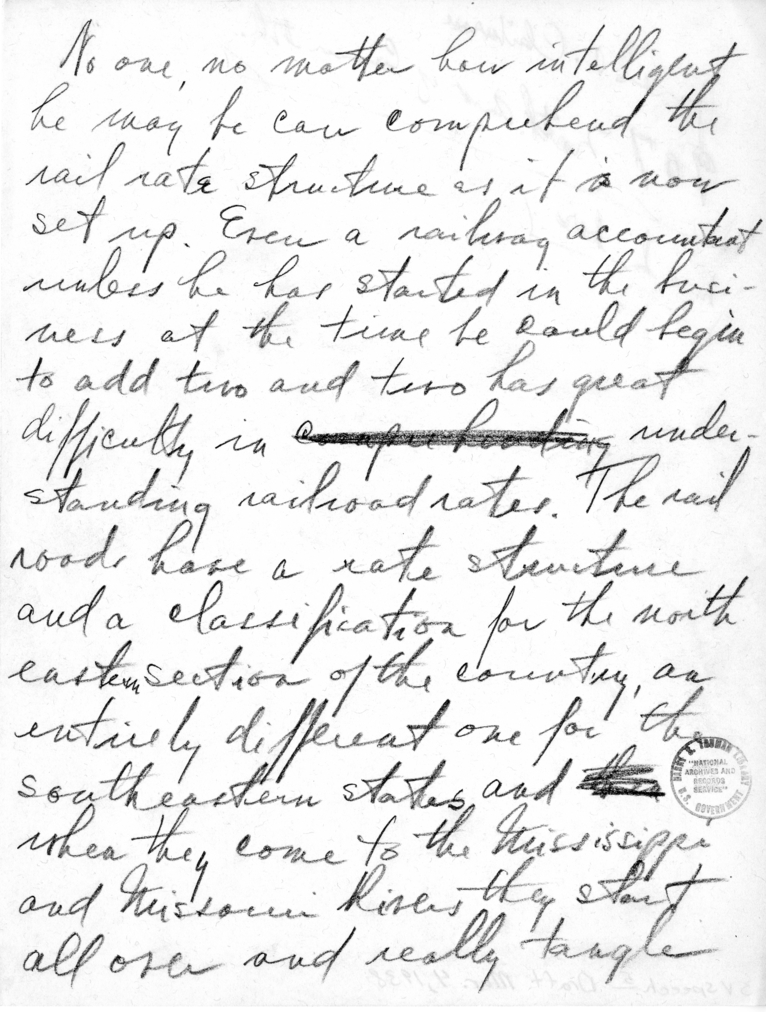 No one, no matter how intelligent
he may be can comprehend the
rail rate structure as it is now
set up. Even a railway accountant
unless he has started in the busi-
ness at the time he could begin
to add two and two has great
difficulty in comprehending under-
standing railroad rates. The rail
roads have a rate structure
and a classification for the north
eastern section of the country, an
entirely different one for the
southeastern states and the
when they come to the Mississippi
and Missouri Rivers they start
all over and really tangle
HARRY S. TRUMAN LIBRARY
"NATIONAL
ARCHIVES AND
RECORDS
SERVICE"
U.S. GOVERNMENT